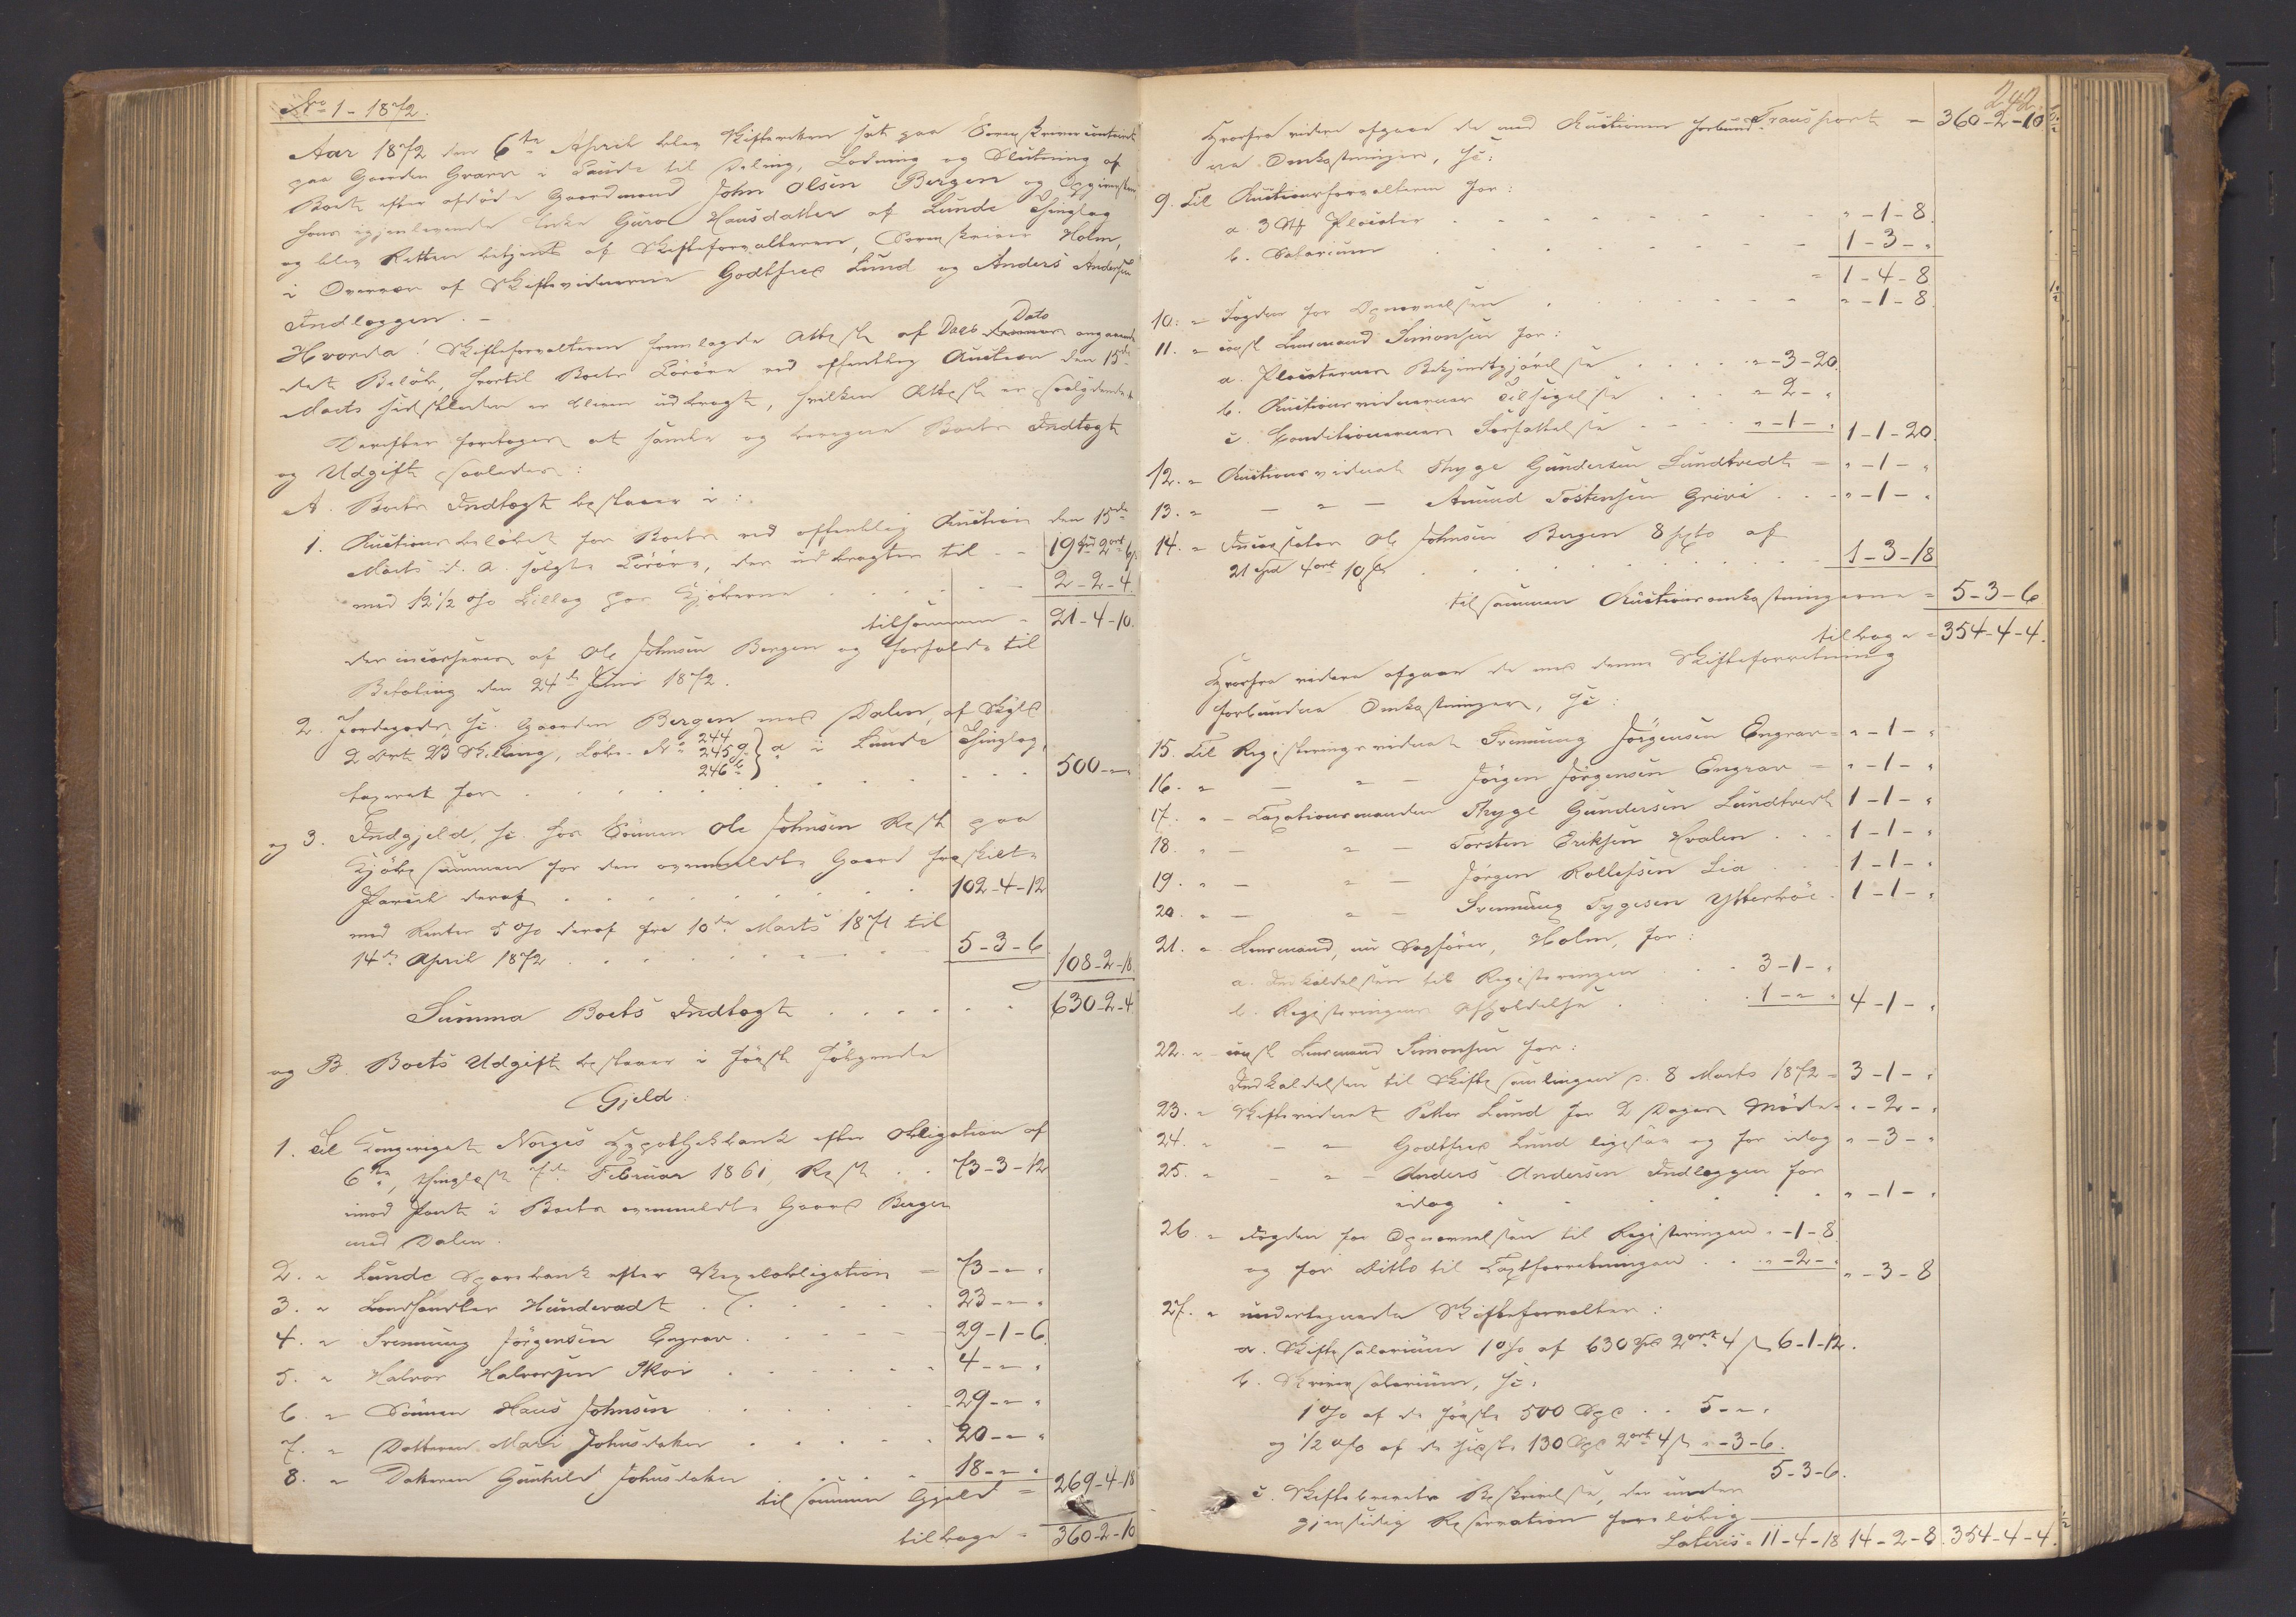 No 1 - 1872.
Aar 1872 den 6te April blev Skifteretten sat paa Sorenskrivercontoret
paa Gaarden Gvarv i Saude til Deling, Lodning og Slutning af
Boet efter afdøde Gaardmand John Olsen Bergen og
hans igjenlevende Enke Guro Hansdatter af Lunde Thinglag
og blev Retten betjent af Skifteforvalteren, Sorenskriver Holm,
i Overvær af Skiftevidnerne Godtfred Lund og Anders Andersen
Indlæggen. -
Hvorda! Skifteforvalteren fremlagde Attest af Dags Dato angaaende
det Beløb, hvortil Boets Løsøre ved offentlig Auction den 15de
Marts sidstleden er bleven udbragt, hvilken Attest er saalydende
Derefter foretoges at samle og beregne Boets Indtægt
og Udgift saaledes:
A. Boets Indtægt bestaaer i:
1. Auctionsbeløbet for Boets ved offentlig Auction den 15de
Marts d. A. solgte Løsøre, der udbragtes til - - 19 Spd 2 ort 6 s
med 12 1/2 o/o Tillæg for Kjøberne . . . 2 - 2 - 4.
tilsammen = 21-4-10.
der incasseres af Ole Johnsen Bergen og forfalde til
Betaling den 24de Juni 1872.
2. Jordegods, Sc. Gaarden Bergen med Dalen, af Skyld
2 Ort 23 Skilling, Løbe-No 244 245 g 246 b } a i Lunde Thinglag,
taxeret for . . . . . . . . 500 - " - "
og 3. Indgjeld, Sc. hos Sønnen Ole Johnsen Rest paa
Kjøbesummen for den ommeldte Gaard fraskilte
Parcel deraf . . . . . . 102-4-12
med Renter 5 o/o deraf fra 10de Marts 1871 til
14de April 1872 . . . . . . 5-3-6 108-2-18.
Summa Boets Indtægt . . . . . . 630-2-4.
og B. Boets Udgift bestaaer i først følgende
Gjeld:
1. Til Kongeriget Norges Hypothekbank efter Obligation af
6te, thinglæst 7de Februar 1861, Rest . . 73-3-12
imod Pant i Boets ommeldte Gaard Bergen
med Dalen.
2. " Lunde Sparebank efter Vexelobligation = 73 - " - "
3. " Landhandler Hundevadt . . . . . 23 - " - "
4. " Svennung Jørgensen Engrav . . . 29-1-6.
5. " Halvor Halvorsen Skoi . . . . . 4 - " - "
6. " Sønnen Hans Johnsen . . . . . 29 - " - "
7. " Datteren Mari Johnsdatter . . . . . 20 - " - "
8. " Datteren Gunhild Johnsdatter . . . . 18 - " - "
tilsammen Gjeld = 269-4-18
tilbage = 360-2-10
242.
Transport = 360-2-10
Hvorfra videre afgaaer de med Auctionen forbund-
ne Omkostninger, Sc:
9. Til Auctionsforvalteren for:
a. 3 Stk Placater . . . . . . . " - 1 - 8.
b. Salarium . . . . . . . 1 - 3 - "
= 1-4-8
10. " Fogden for Opnævnelsen . . . . . " - 1 - 8.
11. " const Lensmand Simonsen for:
a. Placaternes Bekjendtgjørelse . . . . " - 3 - 20.
b. Auctionsvidnernes Tilsigelse . . . " 2 - "
c. Conditionernes Forfattelse . . . . " - 1 - " 1-1-20.
12. " Auctionsvidnet Thyge Gundersen Lundtvedt = " - 1 - "
13. " - " - Amund Tostensen Grivi . . " - 1 - "
14. " Incassator Ole Johnsen Bergen 8 pCto af
21 Spd 4 ort 10 s . . . . . . . 1-3-18
tilsammen Auctionsomkostningerne = 5-3-6
tilbage = 354-4-4.
Hvorfra videre afgaaer de med denne Skifteforretning
forbundne Omkostninger, Sc:
15. Til Registeringsvidnet Svennung Jørgensen Engrav = " - 1 - "
16. " - " - Jørgen Jørgensen Engrav = " - 1 - "
17. " - Taxationsmanden Thyge Gundersen Lundtvedt 1 - 1 - "
18. " - " - Torsten Eriksen Hvalen . . . 1 - 1 - "
19. " - " - Jørgen Rollefsen Lia . . . 1 - 1 - "
20. " - " - Svennung Tygesen Ytterböe . 1 - 1 - "
21. " Lensmand, nu Sagfører, Holm, for:
a. Indkaldelsen til Registeringen . . . 3 - 1 - "
b. Registeringens Afholdelse . . . 1 - " - " 4 - 1 - "
22. " - const Lensmand Simonsen for:
Indkaldelsen til Skiftesamlingen d. 8 Marts 1872 = 3 - 1 - "
23. " Skiftevidnet Petter Lund for 2 Dages Møde = " - 2 - "
24. " - " - Godtfred Lund ligesaa og for idag " - 3 - "
25. " - " - Anders Andersen Indlæggen for
idag . . . . . . . " - 1 - "
26. " Fogden for Opnævnelsen til Registeringen " - 1 - 8
og for Ditto til Taxtforretningen . . " - 2 - " " - 3 - 8
27. " undertegnede Skifteforvalter:
a. Skiftesalarium 1 o/o af 630 Spd 2 ort 4 s 6-1-12.
b. Skriversalarium, Sc:
1 o/o af de første 500 Spd . . 5 - " - "
og 1/2 o/o af de sidste 130 Spd 2 ort 4 s " - 3 - 6.
5-3-6.
c. Skiftebrevets Beskrivelse, der under
gjensidig Reservation foreløbig
Lateris = 11-4-18 14-2-8. 354-4-4.